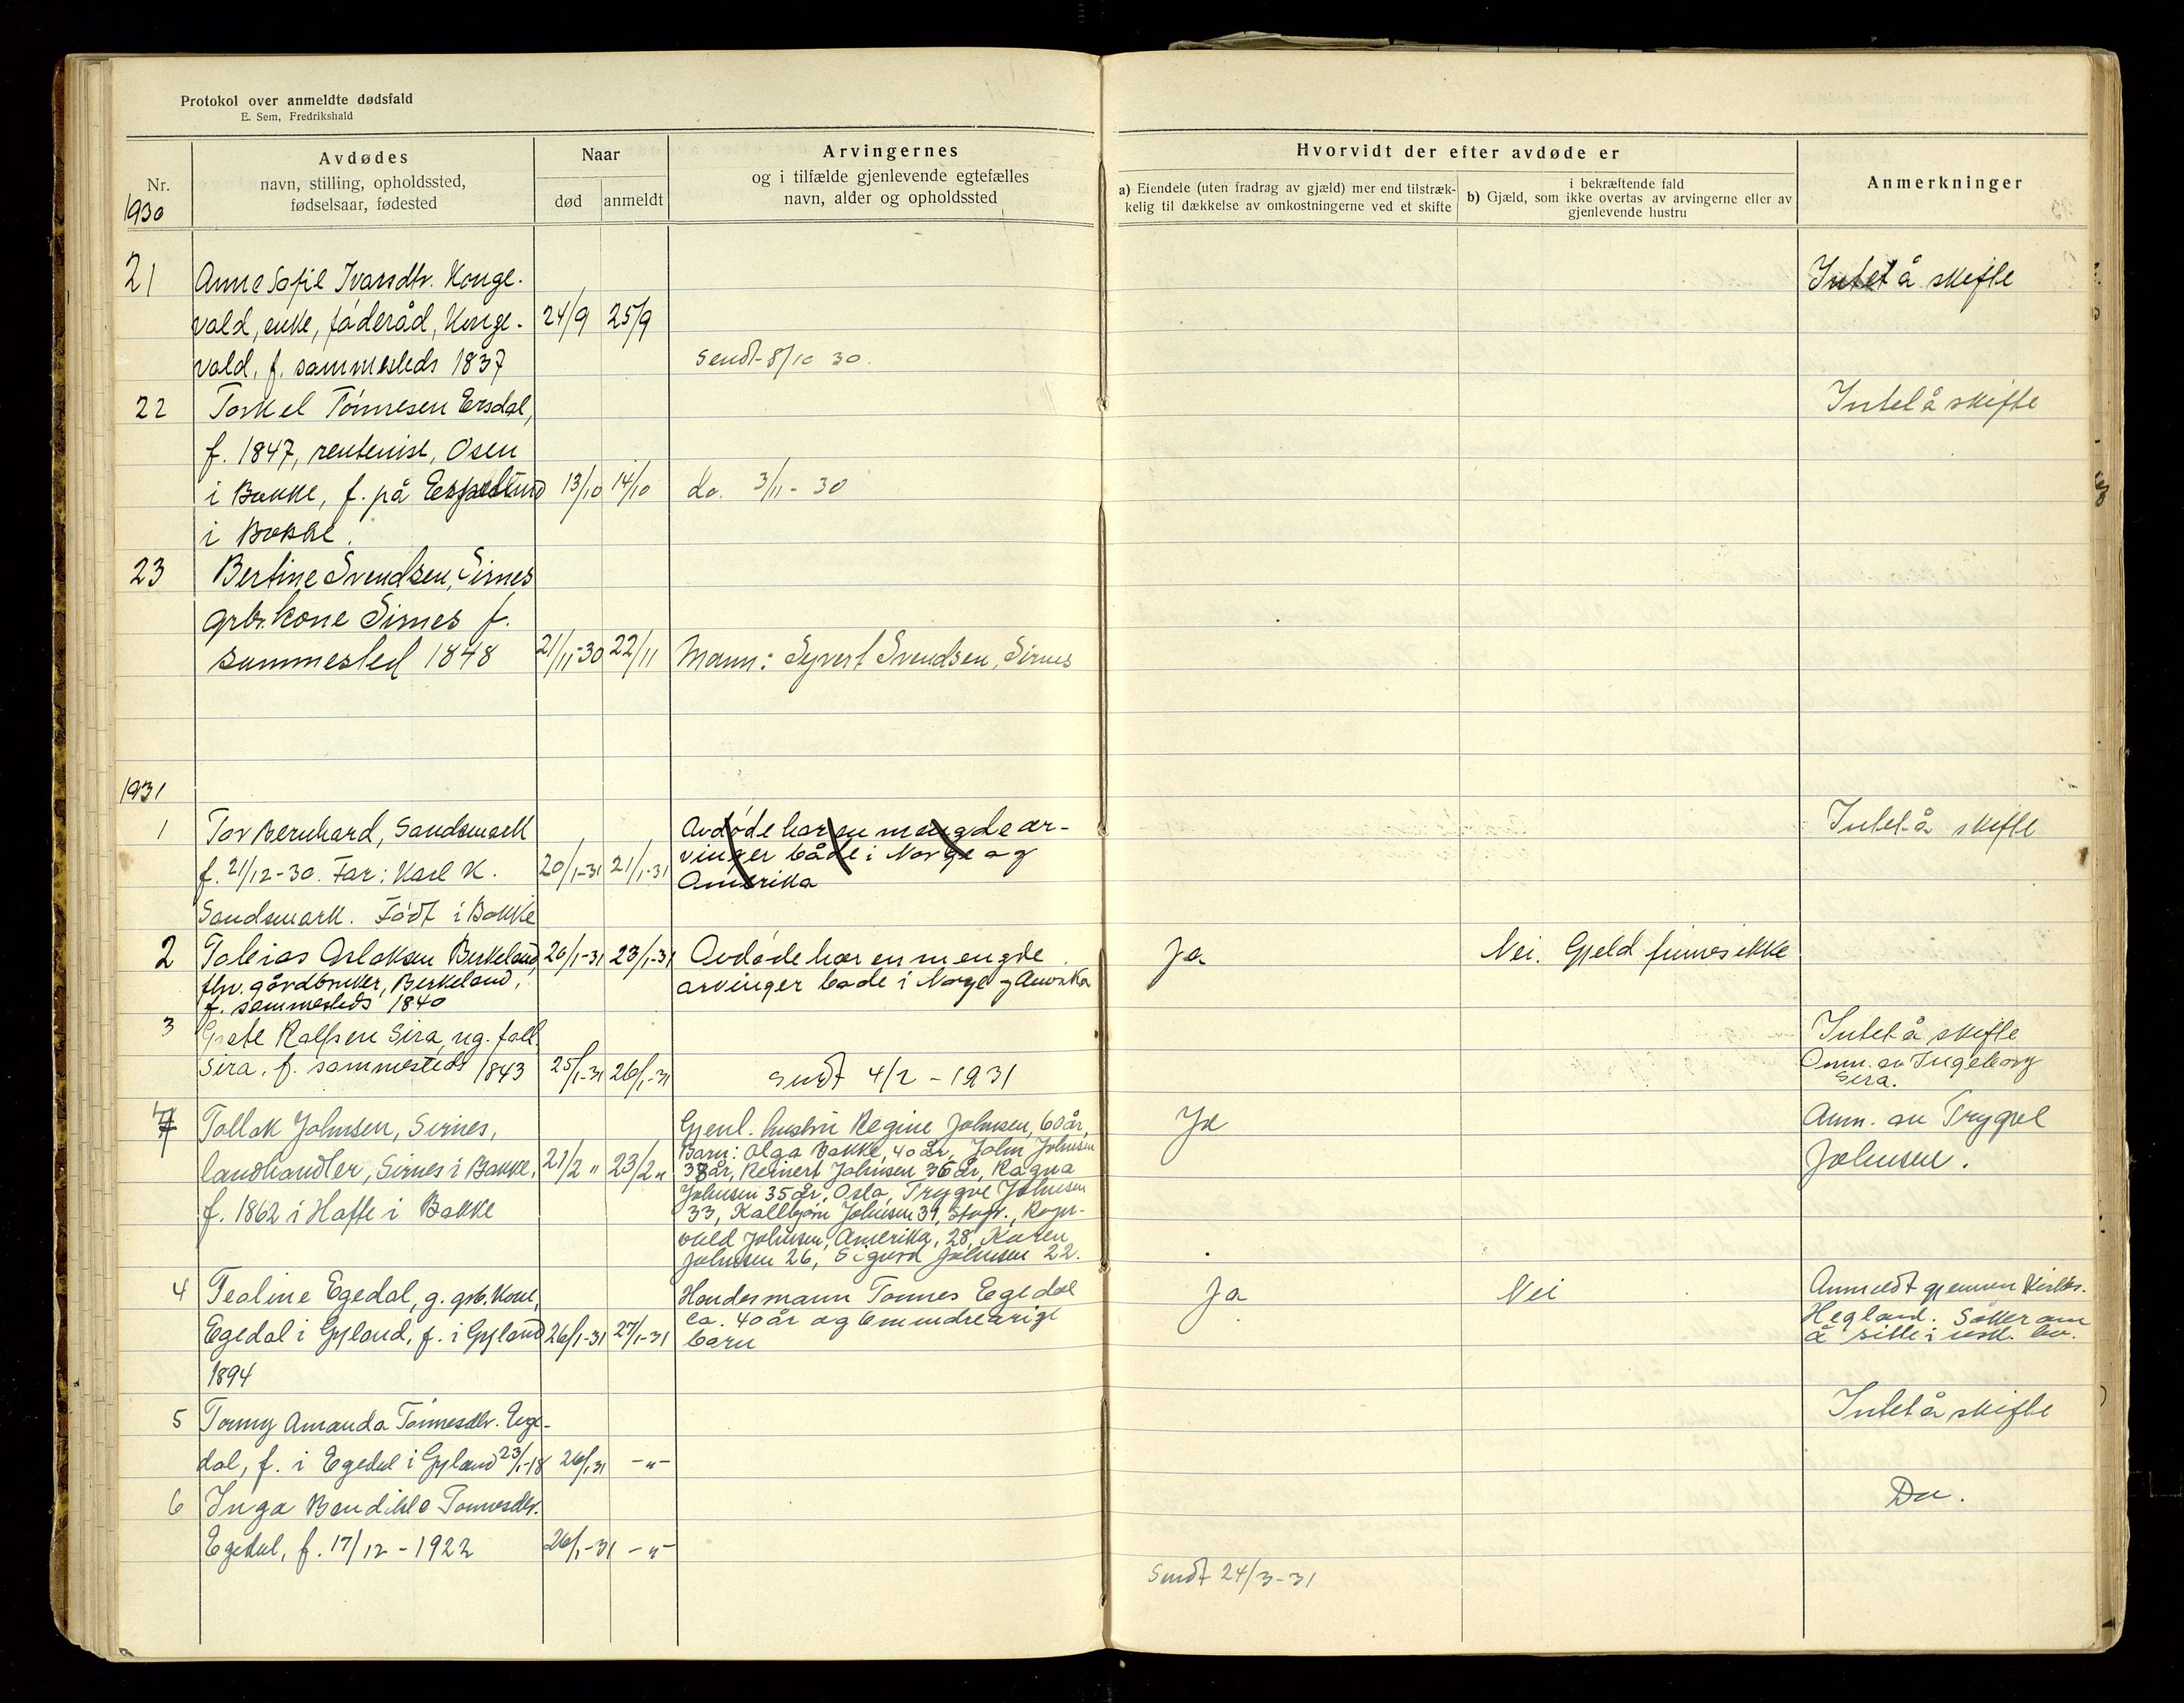 Protokol over anmeldte dødsfald
E. Sem, Fredrikshald
Nr.
Avdødes
navn, stilling, opholdssted,
fødselsaar, fødested
Naar
død
anmeldt
Arvingernes
og i tilfælde gjenlevende egtefælles
navn, alder og opholdssted
Hvorvidt der efter avdøde er
a) Eiendele (uten fradrag av gjæld) mer end tilstræk-
kelig til dækkelse av omkostningerne ved et skifte
i bekræftende fald
b) Gjæld, som ikke overtas av arvingerne eller av
gjenlevende hustru
Anmerkninger
1930
21 Anne Sofie Ivarsdtr. Konge- Intet å skifte
vald, enke, föderåd, Konge- 24/9 25/9
vald, f. sammesteds 1837 sendt 8/10 30.
22 Torkel Tönnesen Ersdal, Intet å skifte
f. 1847, rentenist, Osen
i Bakke, f. på 13/10 14/10 do. 3/11 - 30
i Bakke.
23 Bertine Svendsen, Sirnes
grbr. kone Sirnes f.
sammested 1848 21/11-30 22/11 Mann: Syvert Svendsen, Sirnes
1931
1 Tor Bernhard, Sandsmark Avdøde har en mengde ar- Intet å skifte
f. 21/12-30. Far: Karl K. 20/1-31 21/1-31 vinger både i Norge og
Amerika
Sandsmark. Född i Bakke
2 Tobias Aslaksen Berkeland, 20/1-31 23/1-31 Avdøde har en mengde Ja Nei. Gjeld finnes ikke
fhv. gårdbruker, Berkeland, arvinger både i Norge og Amerika
f. sammesteds 1840
3 Grete Ralfsen Sira, ug. fatt. Intet å skifte
Sira, f. sammesteds 1843 25/1-31 26/1-31 sendt 4/2 - 1931 Anm. av Ingeborg
Sira.
7 Tollak Johnsen, Sirnes, Gjenl. hustru Regine Johnsen, 60 år, Ja Anm. av Trygve
Barn: Olga Bakke, 40 år, John Johnsen
landhandler, Sirnes i Bakke, 21/2 " 23/2 " 38 år, Reinert Johnsen 36 år, Ragna Johnsen.
Johnsen 35 år, Oslo, Trygve Johnsen
f. 1862 i Hafte i Bakke 33, Kallbjörn Johnsen 31, Ragn-
vald Johnsen, Amerika, 28, Karen
Johnsen 26, Sigurd Johnsen 22.
4 Tealine Egedal, g. grb. kone, Hendes mann Tønnes Egedal Ja Nei Anmeldt gjennem Kirkes.
Egedal i Gyland, f. i Gyland 26/1-31 27/1-31 ca. 40 år og 6 mindreårige Hegland. Søker om
1894 barn å sitte i usk. bo.
5 Tonny Amanda Tönnesdtr. Ege- Intet å skifte
dal, f. i Egedal i Gyland 23/1-18 26/1 31 -"-
6 Inga Bendikte Tønnesdtr. Do.
Egedal, f. 17/12 - 1922 26/1-31 -"-
Sendt 24/3-31